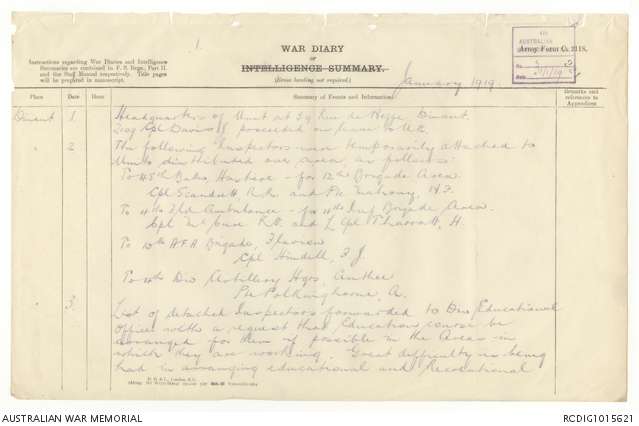 1.
WAR DIARY
OF
INTELLIGENCE SUMMARY.
(Erase heading not required.)
Instructions regarding War Diaries and Intelligence
Summaries are contained in F. S. Regs., Part II.
and the Staff Manual respectively. Title pages
will be prepared in manuscript.
Army Form C. 2118.
AUSTRALIAN
January 1919.
Place
Date
Hour
Summary of Events and Information
Remarks and
references to
Appendices
Dinant 1. Headquarters of Unit at 59 Rue de Dinant.
Cpl Davis proceeded on leave to U.K.
2 The following Inspectors were temporarily attached to
Units distributed over area, as follows:
To 48th Batn, - for 12th Brigade Area
Cpl R.R. and Pte H.F.
To 4th Fld Ambulance - for 4th Inf Brigade Area
Cpl R.V. and L/Cpl H.
To 10th A F A Brigade,
Cpl F J.
To 4th Div Artillery Hqrs, Anthee
Pte Polkinghorne, A.
3. List of detached Inspectors forwarded to Div. Educational
Officer with a request that Education course be
arranged for them if possible in the Areas in
which they are working. Great difficulty is being
had in arranging educational and Recreational
AUSTRALIAN WAR MEMORIAL
RCDIG1015621